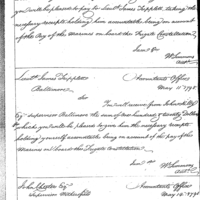 you will be pleased to pay to Lieut James Triplett, taking the
necessary receipts holding him accountable, being on account
of the Pay of the Marines on board the Frigate Constellation
I am &c
Wm Simmons
Lieut James Triplett
Baltimore
Accountants Office
May 11th 1798
Sir
You will receive from
Esqr Supervisor Baltimore the sum of two hundred & twenty Dollars
which you will be pleased to give him the necessary receipts
holding yourself accountable, being on account of the pay of the
Marines on board the Frigate Constitution
I am &c
Wm Simmons
John Chester Esqr
Supervisor
Accountants Office
May 12th 1798